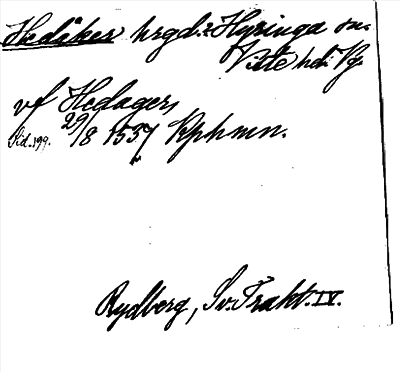 Hedåker hrgd. i Hyringa sn.
Viste hd. Vg
vf Hedager,
29/8 1537 Kphmn.
Sid. 199.
Rydberg, Sv. Trakt. IV.